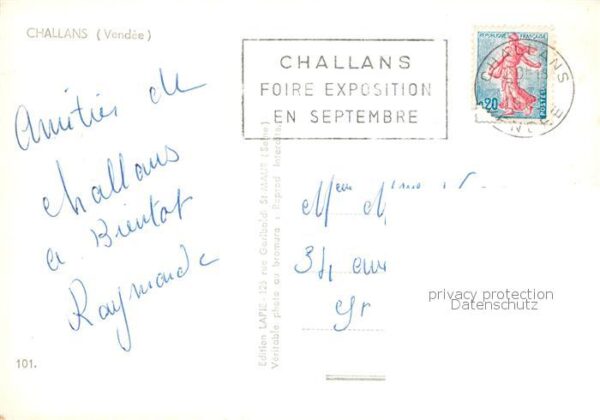 CHALLANS (Vendée)
CHALLANS
FOIRE EXPOSITION
EN SEPTEMBRE
REPUBLIQUE FRANÇAISE
0,20
POSTES
CHALLANS
VENDEE
Amitiés de
challans
a Bientot
Raymonde
Edition LAPIE - 125 rue Garibaldi St-MAUR (Seine)
Véritable photo au bromure - Reprod Interdite
34
Gr
privacy protection
Datenschutz
101.